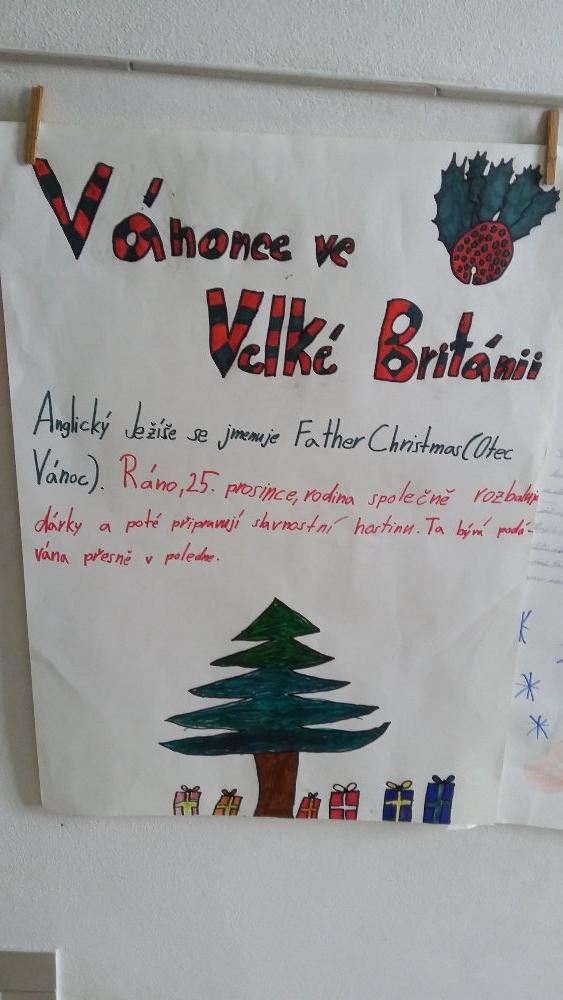 Vánonce ve
Velké Británii
Anglický Ježíše se jmenuje Father Christmas (Otec
Vánoc). Ráno, 25. prosince, rodina společně rozbaluje
dárky a poté připravují slavnostní hostinu. Ta bývá podá-
vána přesně v poledne.